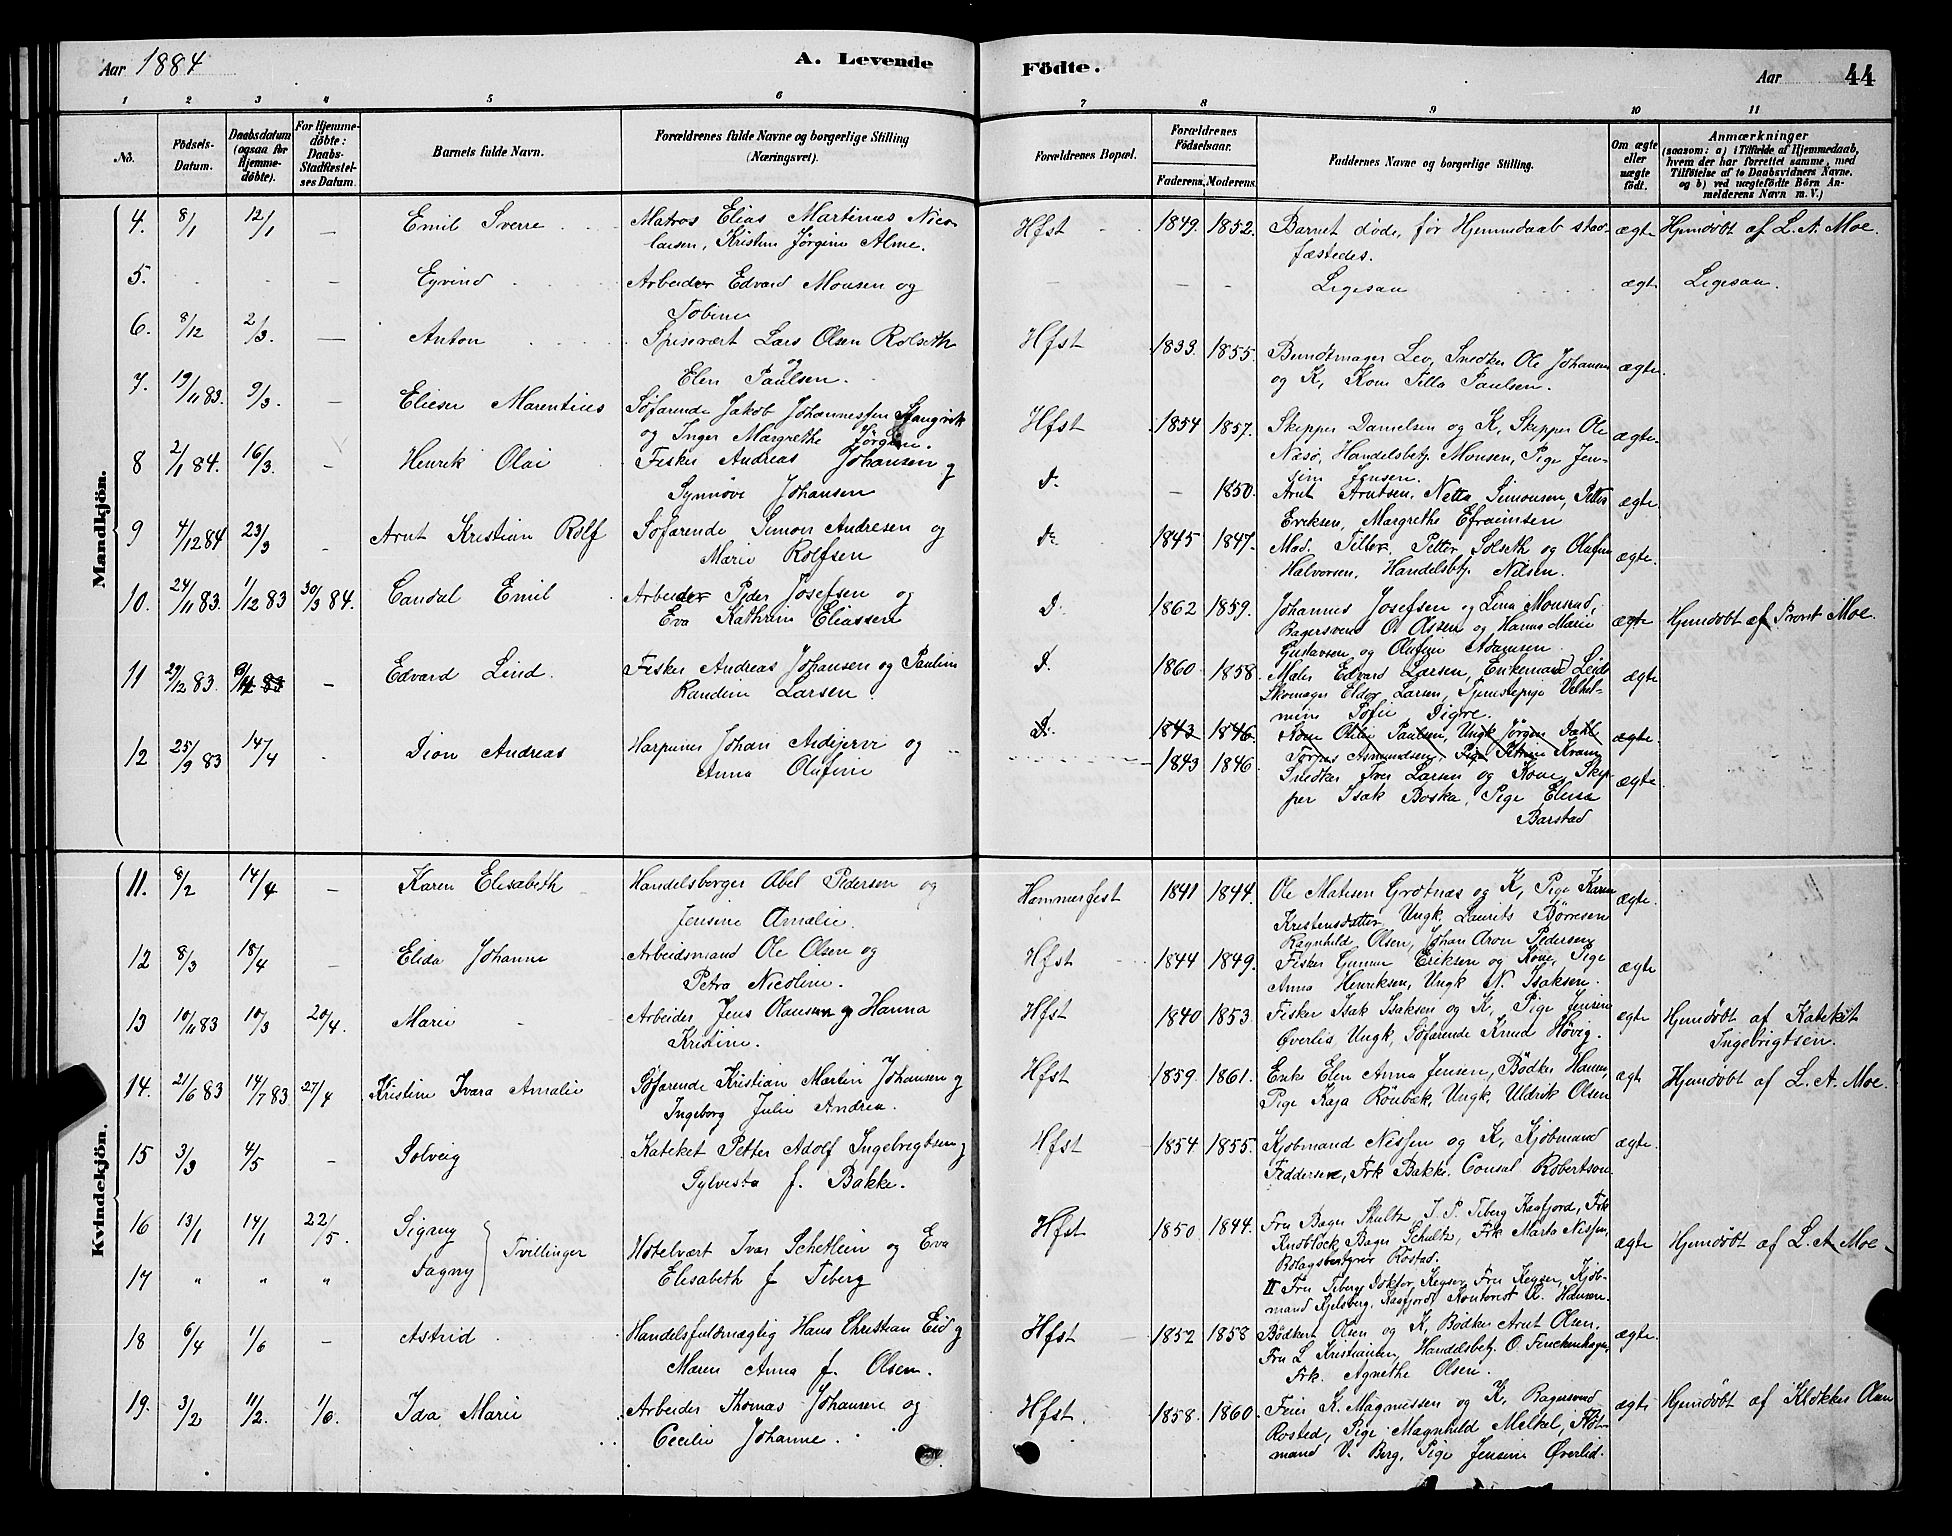 Aar 1884
A. Levende
Födte.
Aar
44
1 2 3 4 5 6 7 8 9 10 11
No.
Födsels-Datum.
Daabsdatum (ogsaa for Hjemme-döbte).
For Hjemme-döbte: Daabs-Stadfæstel-ses Datum.
Barnets fulde Navn.
Forældrenes fulde Navne og borgerlige Stilling (Næringsvei).
Forældrenes Bopæl.
Forældrenes Födselsaar.
Faderens. Moderens.
Faddernes Navne og borgerlige Stilling.
Om ægte eller uægte födt.
Anmærkninger
(saasom: a) i Tilfælde af Hjemmedaab, hvem der har forrettet samme, med Tilföielse af to Daabsvidners Navne, og b) ved uægtefödte Börn An-melderens Navn m. V.)
Mandkjön.
4. 8/1 12/1 — Emil Sverre
Matros Elias Martinus Nico-
laisen, Kristine Jørgine Alme.
Hfst 1849. 1852.
Barnet døde, før Hjemmedaab stad-
fæstedes.
ægte Hjemdøbt af L. A. Moe.
5. — Eyvind
Arbeider Edvard Monsen og
Tobine
Ligesaa
ægt Ligesaa.
6. 8/12 2/3. — Anton
Spisevært Lars Olsen Rolseth
og
Elen Paulsen.
Hfst 1833. 1855.
Bundtmager Lev, Snedker Ole Johansen
og K, Kone Tilla Paulsen.
ægte.
7. 19/11 83. 9/3. — Elieser Marentius
Søfarende Jakob Johannesen Stangvik
og Inger Margrethe Jørgine.
Hfst 1854 1857.
Skipper Danielsen og K, Skipper Ole
Næsø, Handelsbetj. Monsen, Pige Jen-
sine Jensen.
ægte.
8 2/1 84. 16/3. — Henrik Olai
Fisker Andreas Johansen og
Synnøve Johansen
D. — 1850.
Arnt Arntsen, Netta Simonsen, Petter
Eriksen, Margrethe Efraimsen
ægte
9 4/12 84 23/3 — Arnt Kristian Rolf
Søfarende Simon Andresen og
Marie Rolfsen
D. 1845 1847.
Mad. Tiller, Petter Solseth og Olufine
Halvorsen, Handelsbetj. Nilsen.
ægte.
10. 24/11 83. 1/12 83 30/3 84. Candal Emil
Arbeider Peder Josefsen og
Eva Kathrine Eliassen
D. 1862 1859.
Johannes Josefsen og Lina Monsrud,
Bagersvend O. Olsen og Hanna Marie
Gustavsen og Olufine Adamsen.
ægte Hjemdøbt af Provst Moe.
11 29/12 83. — Edvard Lind.
Fisker Andreas Johansen og Pauline
Randine Larsen.
D. 1860 1858.
Maler Edvard Larsen, Enkemand Leide
Skomager Eldor Larsen, Tjenestepige Vilhel-
mine Sofie Digre.
ægte
12 25/9 83 14/4 Dion Andreas
Harpuner Johan Aidijervi og
Anna Olufine
D. 1843 1846.
Kone Otilie Paulsen, Ungk Jørgen Dahl
Torger Asmundsen, Pige Petrine Kram
ægte.
1843 1846
Snedker Iver Larsen og Kone, Skip-
per Isak Boska, Pige Elisa
Barstad
ægte
Kvindekjön.
11. 8/2 14/4 — Karen Elisabeth
Handelsborger Abel Pedersen og
Jensine Amalie.
Hammerfest 1841 1844.
Ole Matisen Grøtnæs og K, Pige Karen
Kristensdatter, Ungk. Laurits Børresen
Ragnhild Olsen, Johan Aron Pedersen
ægte.
12 8/3 18/4 — Elida Johanne
Arbeidsmand Ole Olsen og
Petra Nicoline.
Hfst 1844 1849.
Fisker Gunnar Eriksen og Kone, Pige
Anna Henriksen, Ungk N. Isaksen.
ægte
13 10/11 83 10/3 20/4. Marie
Arbeider Jens Olausen og Hanna
Kristine.
Hfst 1840 1853
Fisker Isak Isaksen og K, Pige Jensine
Øverlis, Ungk, Søfarende Knud Høvig.
ægte Hjemdøbt af Kateket
Ingebrigtsen.
14. 21/6 83 14/7 83 27/4 Kristine Ivara Amalie
Søfarende Kristian Martin Johansen og
Ingeborg Julie Andrea.
Hfst 1859. 1861.
Enke Elen Anna Jensen, Bødker Hansen,
Pige Kaja Rönbæk, Ungk. Uldrik Olsen
ægt Hjemdøbt af L. A. Moe.
15 3/3 4/5 — Solveig
Kateket Petter Adolf Ingebrigtsen og
Sylvesta f. Bakke.
Hfst 1854 1855.
Kjøbmand Nissen og K, Kjøbmand
Feddersen, Frk Bakke. Consul Robertson.
ægte.
16 13/1 14/1 22/5. Signy
Tvillinger
Hotelvært Ivar Schetlein og Eva
Elisabeth f Fiberg
17 " " " Dagny
Hfst 1850 1844.
Fru Bager Shultz, J. P. Fiberg Kaafjord, Frk
Knoblock, Bager Schultz, Frk Marta Nissen,
Bolagsbestyrer Rostad.
II Fru Fiberg, Doktor Keyser, Fru Keyser, Kjøb-
mand Kjelsberg, Kaafjord, Kontorist A. Hansen.
ægte Hjemdøbt af L. A. Moe
18 6/4 1/6 — Astrid
Handelsfuldmægtig Hans Christian Eid og
Maren Anna f. Olsen.
Hfst 1852 1858
Bödkert Olsen og K, Bødker Arnt Olsen,
Fru L Kristiansen, Handelsbetj. O. Finckenhagen,
Frk. Agnethe Olsen.
ægte.
19. 3/2 11/2. 1/6. Ida Marie
Arbeider Thomas Johansen og
Cecilie Johanne.
Hfst. 1858. 1860.
Feier K. Magnussen og K, Bagersvend
Rosted, Pige Magnhild Melkel, Flöt-
mand V. Berg, Pige Jensine Øverlid.
ægte Hjemdøbt af Klokker Olsen